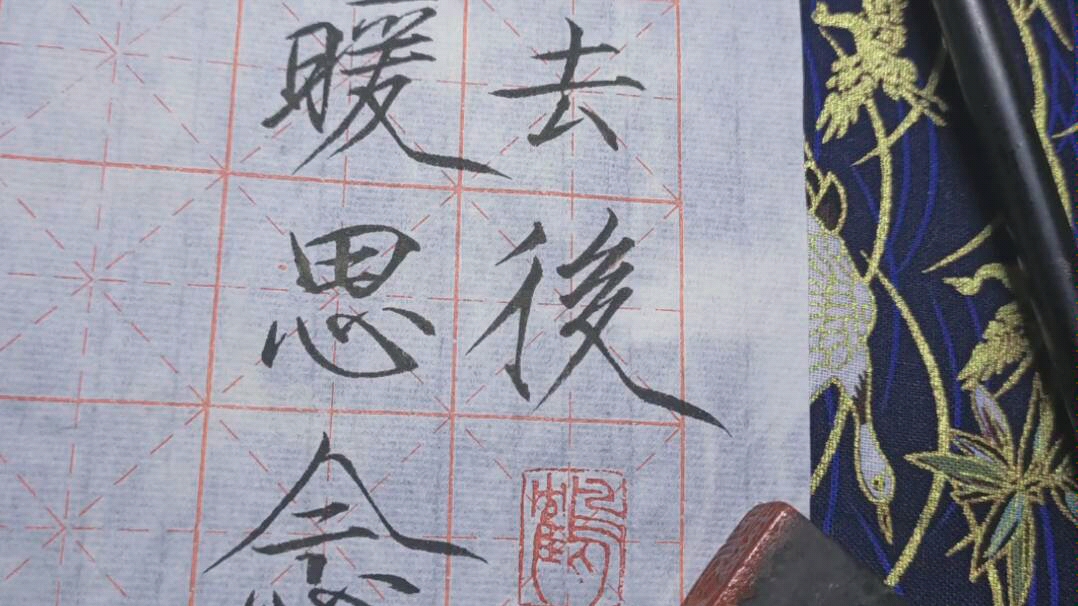 去後
暖思念